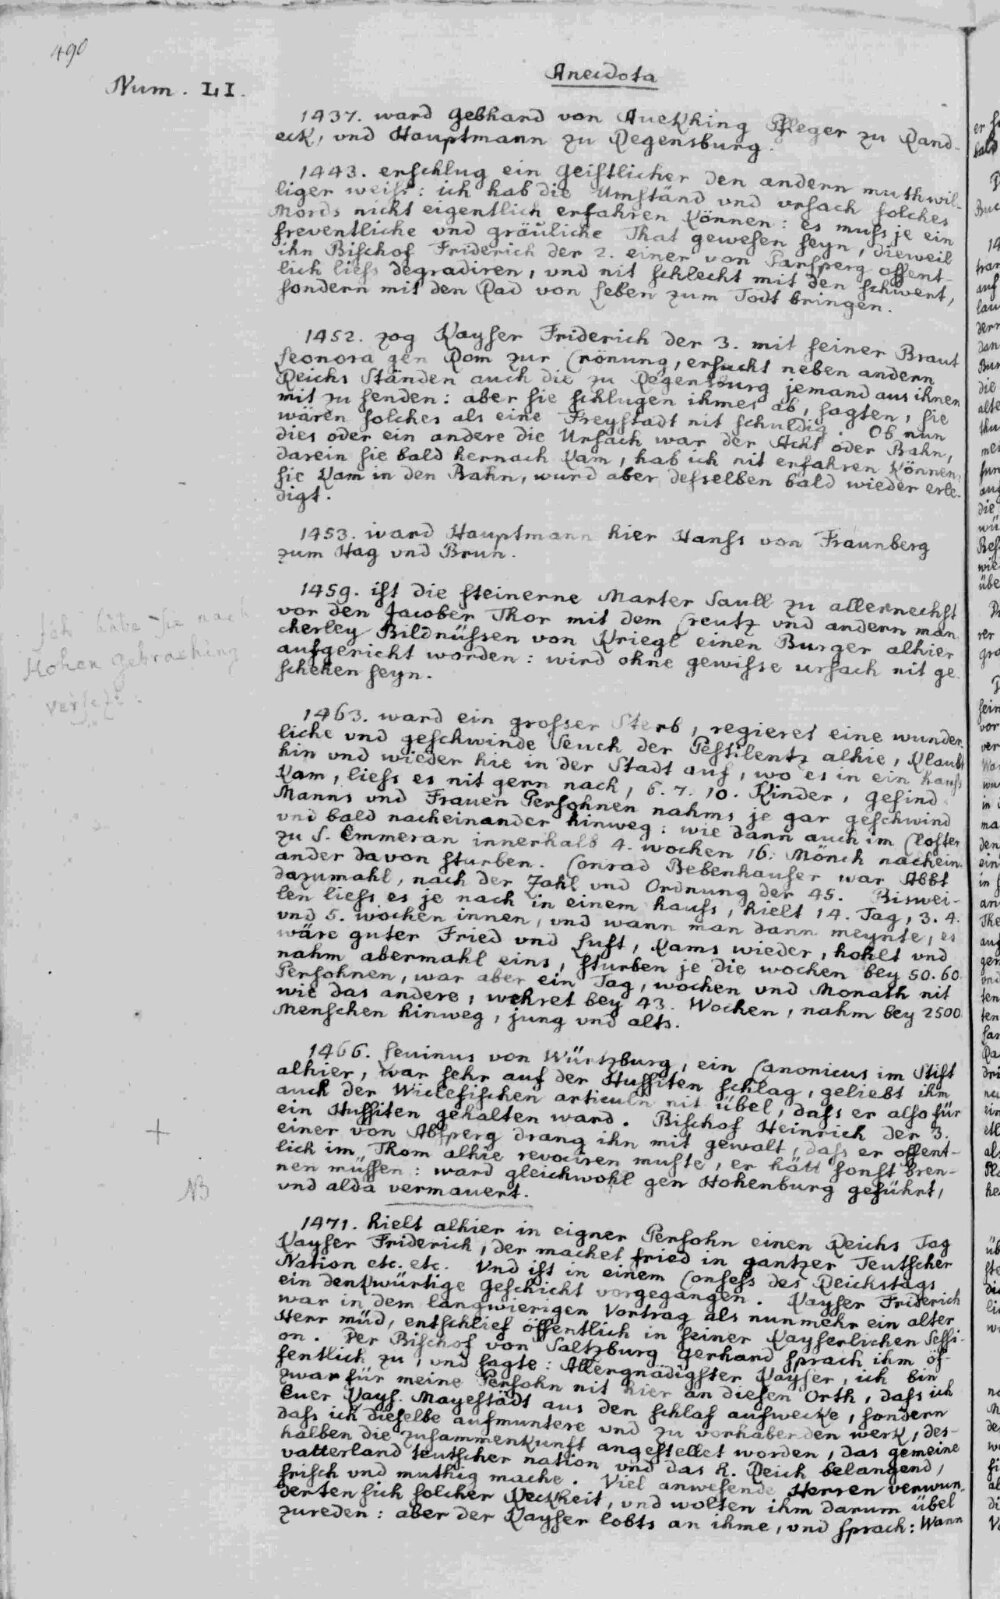 490
Anecdota
Num. LI.
1437. ward Gebhard von Auckhing Pfleger zu Rand-
eck, vnd Hauptmann zu Regensburg.
1443. erschlug ein Geistlicher den andern muthwil-
liger weiss: ich hab die Umständ vnd vrsach solches
Mords nicht eigentlich erfahren können: es muss je ein
freventliche vnd gräuliche That gewesen seyn, dieweil
ihn Bischof Friderich der 2. einer von Parsperg offent-
lich liess degradiren, vnd nit schlecht mit den schwert,
sondern mit den Rad von leben zum Todt bringen.
1452. zog Kayser Friderich der 3. mit seiner Braut
Leonora gen Rom zur Crönung, ersucht neben andern
Reichs Ständen auch die zu Regensburg jemand aus ihnen
mit zu senden: aber sie schlugen ihmes ab, sagten, sie
wären solches als eine Freystadt nit schuldig. Ob nun
dies oder ein andere die Ursach war der Acht oder Bahn,
darein sie bald hernach kam, hab ich nit erfahren können,
sie kam in den Bahn, wurd aber desselben bald wieder erle-
digt.
1453. ward Hauptmann hier Hanss von Fraunberg
zum Hag vnd Brun.
1459. ist die steinerne Marter Saull zu allernechst
vor den Jacober Thor mit dem Creutz vnd andern man-
cherley Bildnüssen von Kriegl einen Burger alhier
aufgericht worden: wird ohne gewisse ursach nit ge-
schehen seyn.
Ich habe sie nach
Hohen Gebraching
versetzt.
1463. ward ein grosser Sterb, regieret eine wunder-
liche vnd geschwinde Seuch der Pestilentz alhie, klaubt
hin vnd wieder hie in der Stadt auf, wo es in ein hauss
kam, liess es nit gern nach, 6. 7. 10. Kinder, Gesind
Manns vnd Frauen Persohnen nahms je gar geschwind
vnd bald nacheinander hinweg: wie dann auch im Closter
zu S. Emmeran innerhalb 4. wochen 16. Mönch nachein-
ander davon sturben. Conrad Bebenhauser war Abbt
dazumahl, nach der Zahl vnd Ordnung der 45. Biswei-
len liess es je nach in einem hauss, hielt 14. Tag, 3. 4.
vnd 5. wochen innen, vnd wann man dann meynte, es
wäre guter Fried vnd Lust, kams wieder, hohlt vnd
nahm abermahl eins, sturben je die wochen bey 50. 60
Persohnen, war aber ein Tag, wochen vnd Monath nit
wie das andere, wehret bey 43. Wochen, nahm bey 2500
Menschen hinweg, jung vnd alts.
1466. Levinus von Würtzburg, ein Canonicus im Stift
alhier, war sehr auf der Hussiten schlag, geliebt ihm
auch der Wiclefischen articuln nit übel, dass er also für
ein Hussiten gehalten ward. Bischof Heinrich der 3.
einer von Absperg drang ihn mit gewalt, dass er offent-
lich im Thom alhie revociren muste, er hätt sonst bren-
nen müssen: ward gleichwohl gen Hohenburg geführt,
vnd alda vermauert.
NB
1471. hielt alhier in eigner Persohn einen Reichs Tag
Kayser Friderich, der machet fried in gantzer Teutscher
Nation etc. etc. Vnd ist in einem Consess des Reichstags
ein denkwürtige Geschicht vorgegangen. Kayser Friderich
war in dem langwierigen Vortrag als nunmehr ein alter
Herr müd, entschlief öffentlich in seiner Kayserlichen Sessi-
on. Der Bischof von Saltzburg Gerhand sprach ihm öf-
fentlich zu, vnd sagte: Allergnädigster Kayser, ich bin
zwar für meine Persohn nit hier an diesen Orth, dass ich
Euer Kays. Mayestädt aus den schlaf aufwecke, sondern
dass ich dieselbe aufmuntere vnd zu vorhabenden werk, des-
halben die zusammenkunft angestellet worden, das gemeine
vatterland teutscher nation vnd das h. Reich belangend,
frisch vnd muthig mache. Viel anwesende Herren verwun-
derten sich solcher Keckheit, vnd wolten ihm darum übel
zureden: aber der Kayser lobts an ihme, vnd sprach: Wann